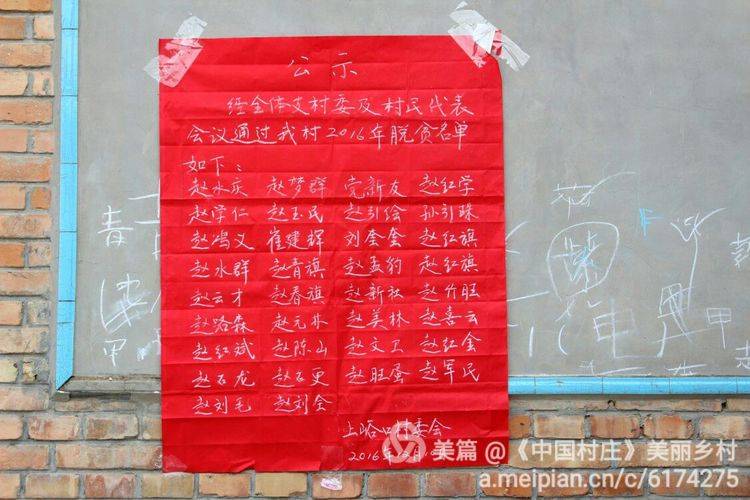 公示
经全体支村委及村民代表
会议通过我村2016年脱贫名单
如下：
赵水庆 赵梦群 党新友 赵红学
赵学仁 赵玉民 赵引绘 孙引珠
赵鸿义 崔建辉 刘奎奎 赵红旗
赵水群 赵青旗 赵孟豹 赵红旗
赵云才 赵春旗 赵新社 赵竹旺
赵路森 赵元林 赵美林 赵喜云
赵红斌 赵陈山 赵文卫 赵红会
赵石龙 赵石更 赵旺蛋 赵军民
赵刘毛 赵刘全
上峪口村委会
2016年
青
电
甲
美篇@《中国村庄》美丽乡村
a.meipian.cn/c/6174275